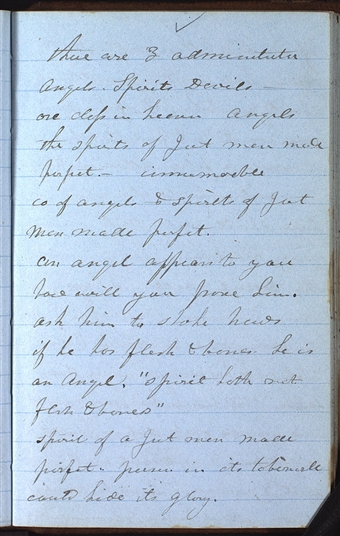 there are 3 administrater
Angels. Spirits Devils —
one class in heaven Angels
the spirits of Just men made
perfect — innumerable
co of angels & spirits of Just
Men made perfect.
an angel appears to you
how will you prove him.
ask him to shake hands
if he has flesh & bones he is
an Angel. "spirit hath not
flesh & bones"
spirit of a Just men made
perfect. person in its tabernacle
could hide its glory.